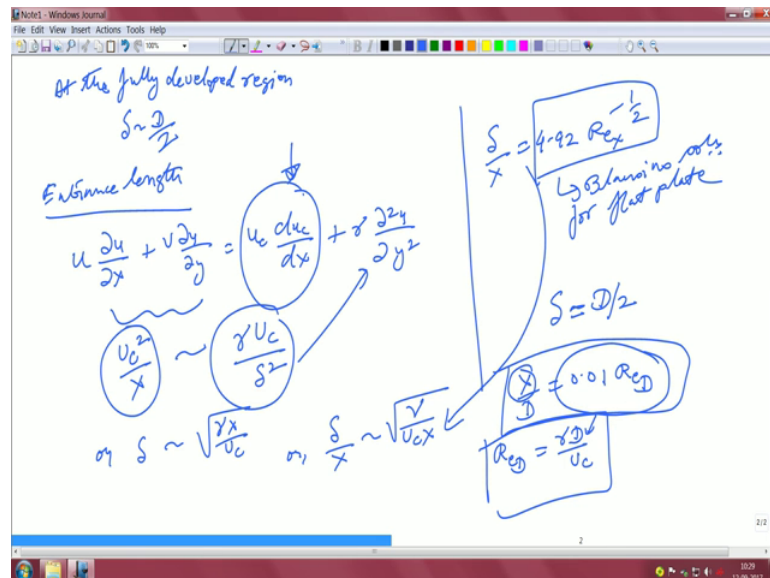 Note1 - Windows Journal
File Edit View Insert Actions Tools Help
100%
At the fully developed region
δ ~ D/2
Entrance length
u ∂u/∂x + v ∂y/∂y = u_c du_c/dx + γ ∂²u/∂y²
U_c²/x ~ γU_c/δ²
or δ ~ √(γx/U_c) or, δ/x ~ √(γ/U_c x)
δ/x = 4.92 Re_x^(-1/2)
↳ Blausius soln.
for flat plate
δ = D/2
x/D = 0.01 Re_D
Re_D = γD/U_c
2/2
2
10:29